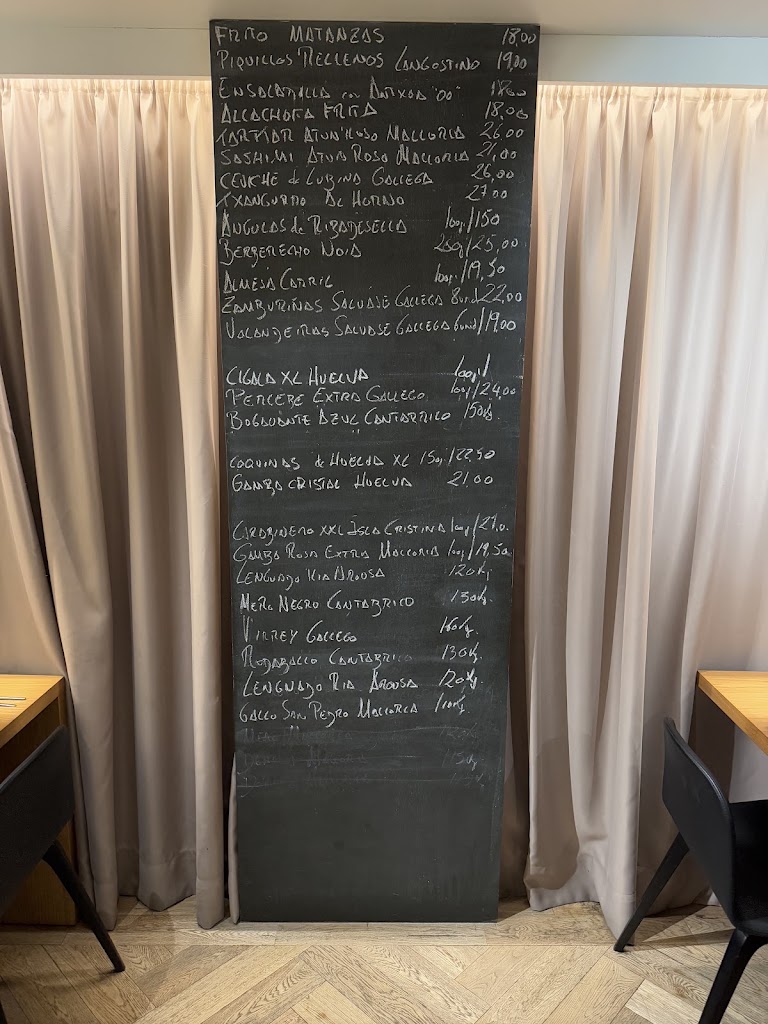 FRITO MATANZAS 18,00
PIQUILLOS RELLENOS LANGOSTINO 19,00
ENSALADILLA con ANTXOA "00" 18,00
ALCACHOFA FRITA 18,00
TARTAR ATUN ROJO MALLORCA 26,00
SASHIMI ATUN ROJO MALLORCA 21,00
CEVICHE de LUBINA GALLEGA 26,00
TXANGURRO AL HORNO 27,00
ANGULAS de RIBADESELLA 100g/150
BERBERECHO NOIA 250g/25,00
ALMEJA CARRIL 100g/19,50
ZAMBURIÑAS SALVAJE GALLEGA 8und/22,00
VOLANDEIRAS SALVAJE GALLEGA 6und/19,00
CIGALA XL HUELVA 100g/
PERCEBE EXTRA GALLEGO 100g/24,00
BOGAVANTE AZUL CANTABRICO 150Kg.
COQUINAS de HUELVA XL 150g/22,50
GAMBA CRISTAL HUELVA 21,00
CARABINERO XXL ISLA CRISTINA 100g/27,0.
GAMBA ROJA EXTRA MALLORCA 100g/19,50
LENGUADO RIA AROUSA 120Kg
MERO NEGRO CANTABRICO 130Kg.
VIRREY GALLEGO 160Kg.
RODABALLO CANTABRICO 130Kg.
LENGUADO RIA AROUSA 120Kg.
GALLO SAN PEDRO MALLORCA 110Kg